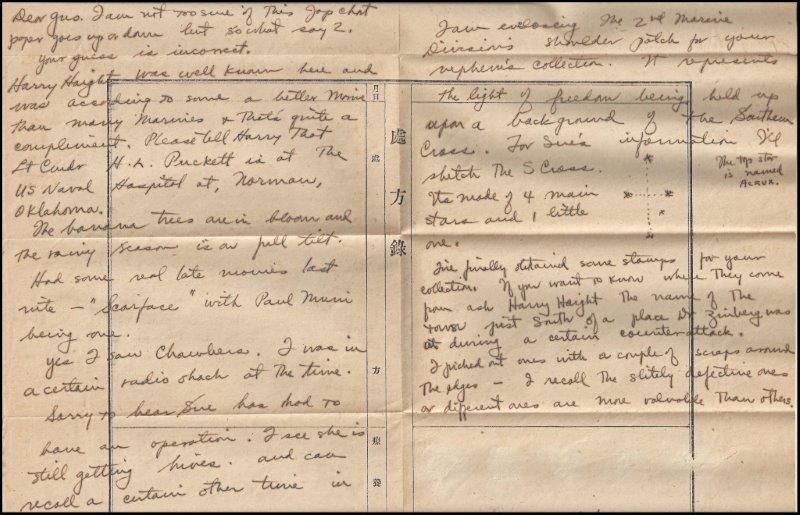 Dear Gus. I am not too sure if this Jap chat
paper goes up or down but so what say I.
your guess is incorrect.
Harry Haight was well known here and
was according to some a better Marine
than many Marines & that's quite a
compliment. Please tell Harry that
Lt Cmdr H.A. Puckett is at the
US Naval Hospital at, Norman,
Oklahoma.
The banana trees are in bloom and
the rainy season is on full tilt.
Had some real late movies last
nite — "Scarface" with Paul Muni
being one.
Yes I saw Chambers. I was in
a certain radio shack at the time.
Sorry to hear Sue has had to
have an operation. I see she is
still getting hives. and can
recall a certain other time in
月日
處
方
療養
處方錄
I am enclosing the 2nd Marine
Division's shoulder patch for your
nephew's collection. It represents
the light of freedom being held up
upon a background of the Southern
Cross. For Sue's information I'll
sketch the S Cross.
The top star
is named
Acrux.
Its made of 4 main
stars and 1 little
one.
I've finally obtained some stamps for your
collection. If you want to know where they come
from ask Harry Haight the name of the
town just South of a place Dr Zinberg was
at during a certain counter attack.
I picked out ones with a couple of scraps around
the edges — I recall the slitely defective ones
or different ones are more valuable than others.